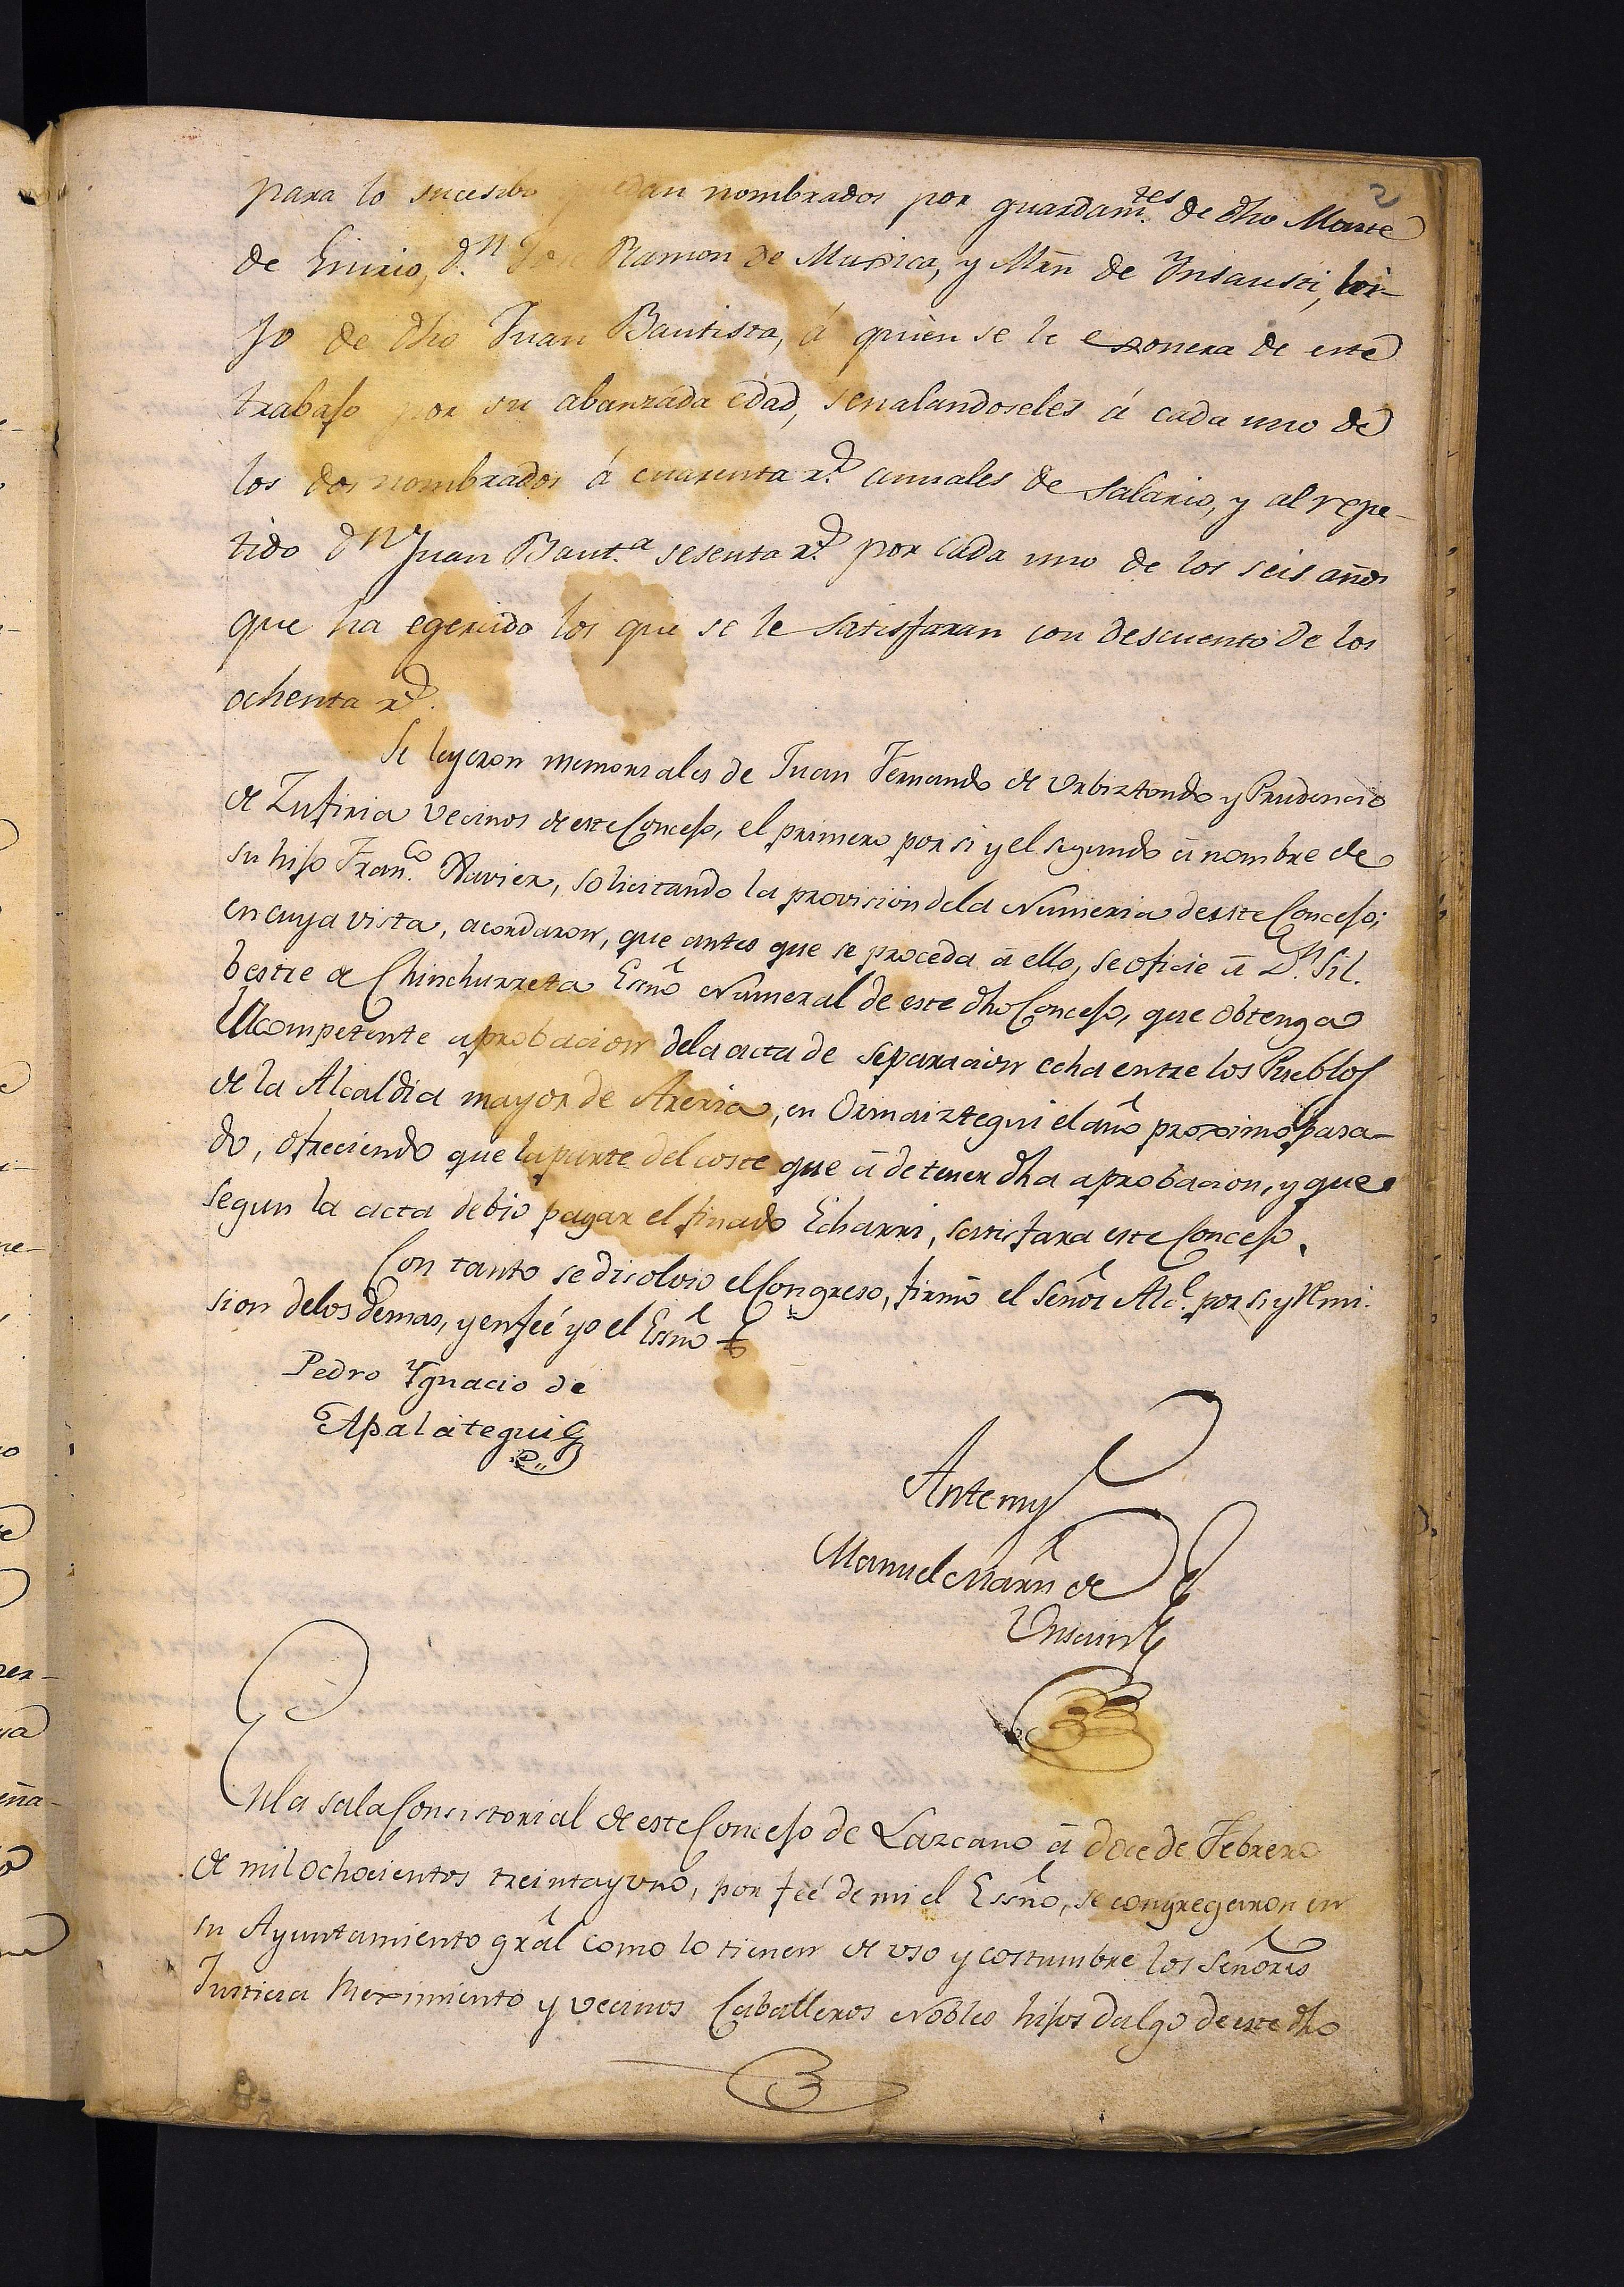 2
para lo sucesibo quedan nombrados por guardam.tes de dho Monte
de Enirio, d.n Jose Ramon de Muxica, y Mrn de Ynsausti, hi-
jo de dho Juan Bautista, á quien se le exonera de este
trabajo por su abanzada edad, señalandoseles á cada uno de
los dos nombrados á cuarenta r.s annales de salario, y al repe-
tido dn Juan Baut.a sesenta r.s por cada uno de los seis años
que ha egercido los que se le satisfaran con descuento de los
ochenta r.s
Se leyeron memoriales de Juan Fernando de Urbiztondo y Prudencio
de Zufiria vecinos de este Concejo, el primero por si y el segundo á nombre de
su hijo Fran.co Xavier, solicitando la provision de la Numeria de este Concejo;
en cuya vista, acordaron, que antes que se proceda á ello, se oficie á D.n Sil-
bestre de Chinchurreta Essno Numeral de este dho Concejo, que obtenga
la competente aprobacion de la acta de separacion echa entre los Pueblos
de la Alcaldia mayor de Areria, en Ormaiztegui el año proximo pasa-
do, ofreciendo que la parte del coste que á de tener dha aprobacion, y que
segun la acta debio pagar el finado Echarri, satisfara este Concejo.
Con tanto se disolvio el Congreso, firmó el Señor Alc.e por si y Remi-
sion de los demas, y enfeé yo el Essno
Pedro Ygnacio de
Apalategui
Ante my
Manuel Marn de
Unsain
En la sala Consistorial de este Concejo de Lazcano á doce de Febrero
de mil ochocientos treinta y uno, por feé de mi el Essno, se congregaron en
su Ayuntamiento gral como lo tienen de uso y costumbre los Señores
Justicia Reximiento y vecinos Caballeros Nobles hijos dalgo de este dho